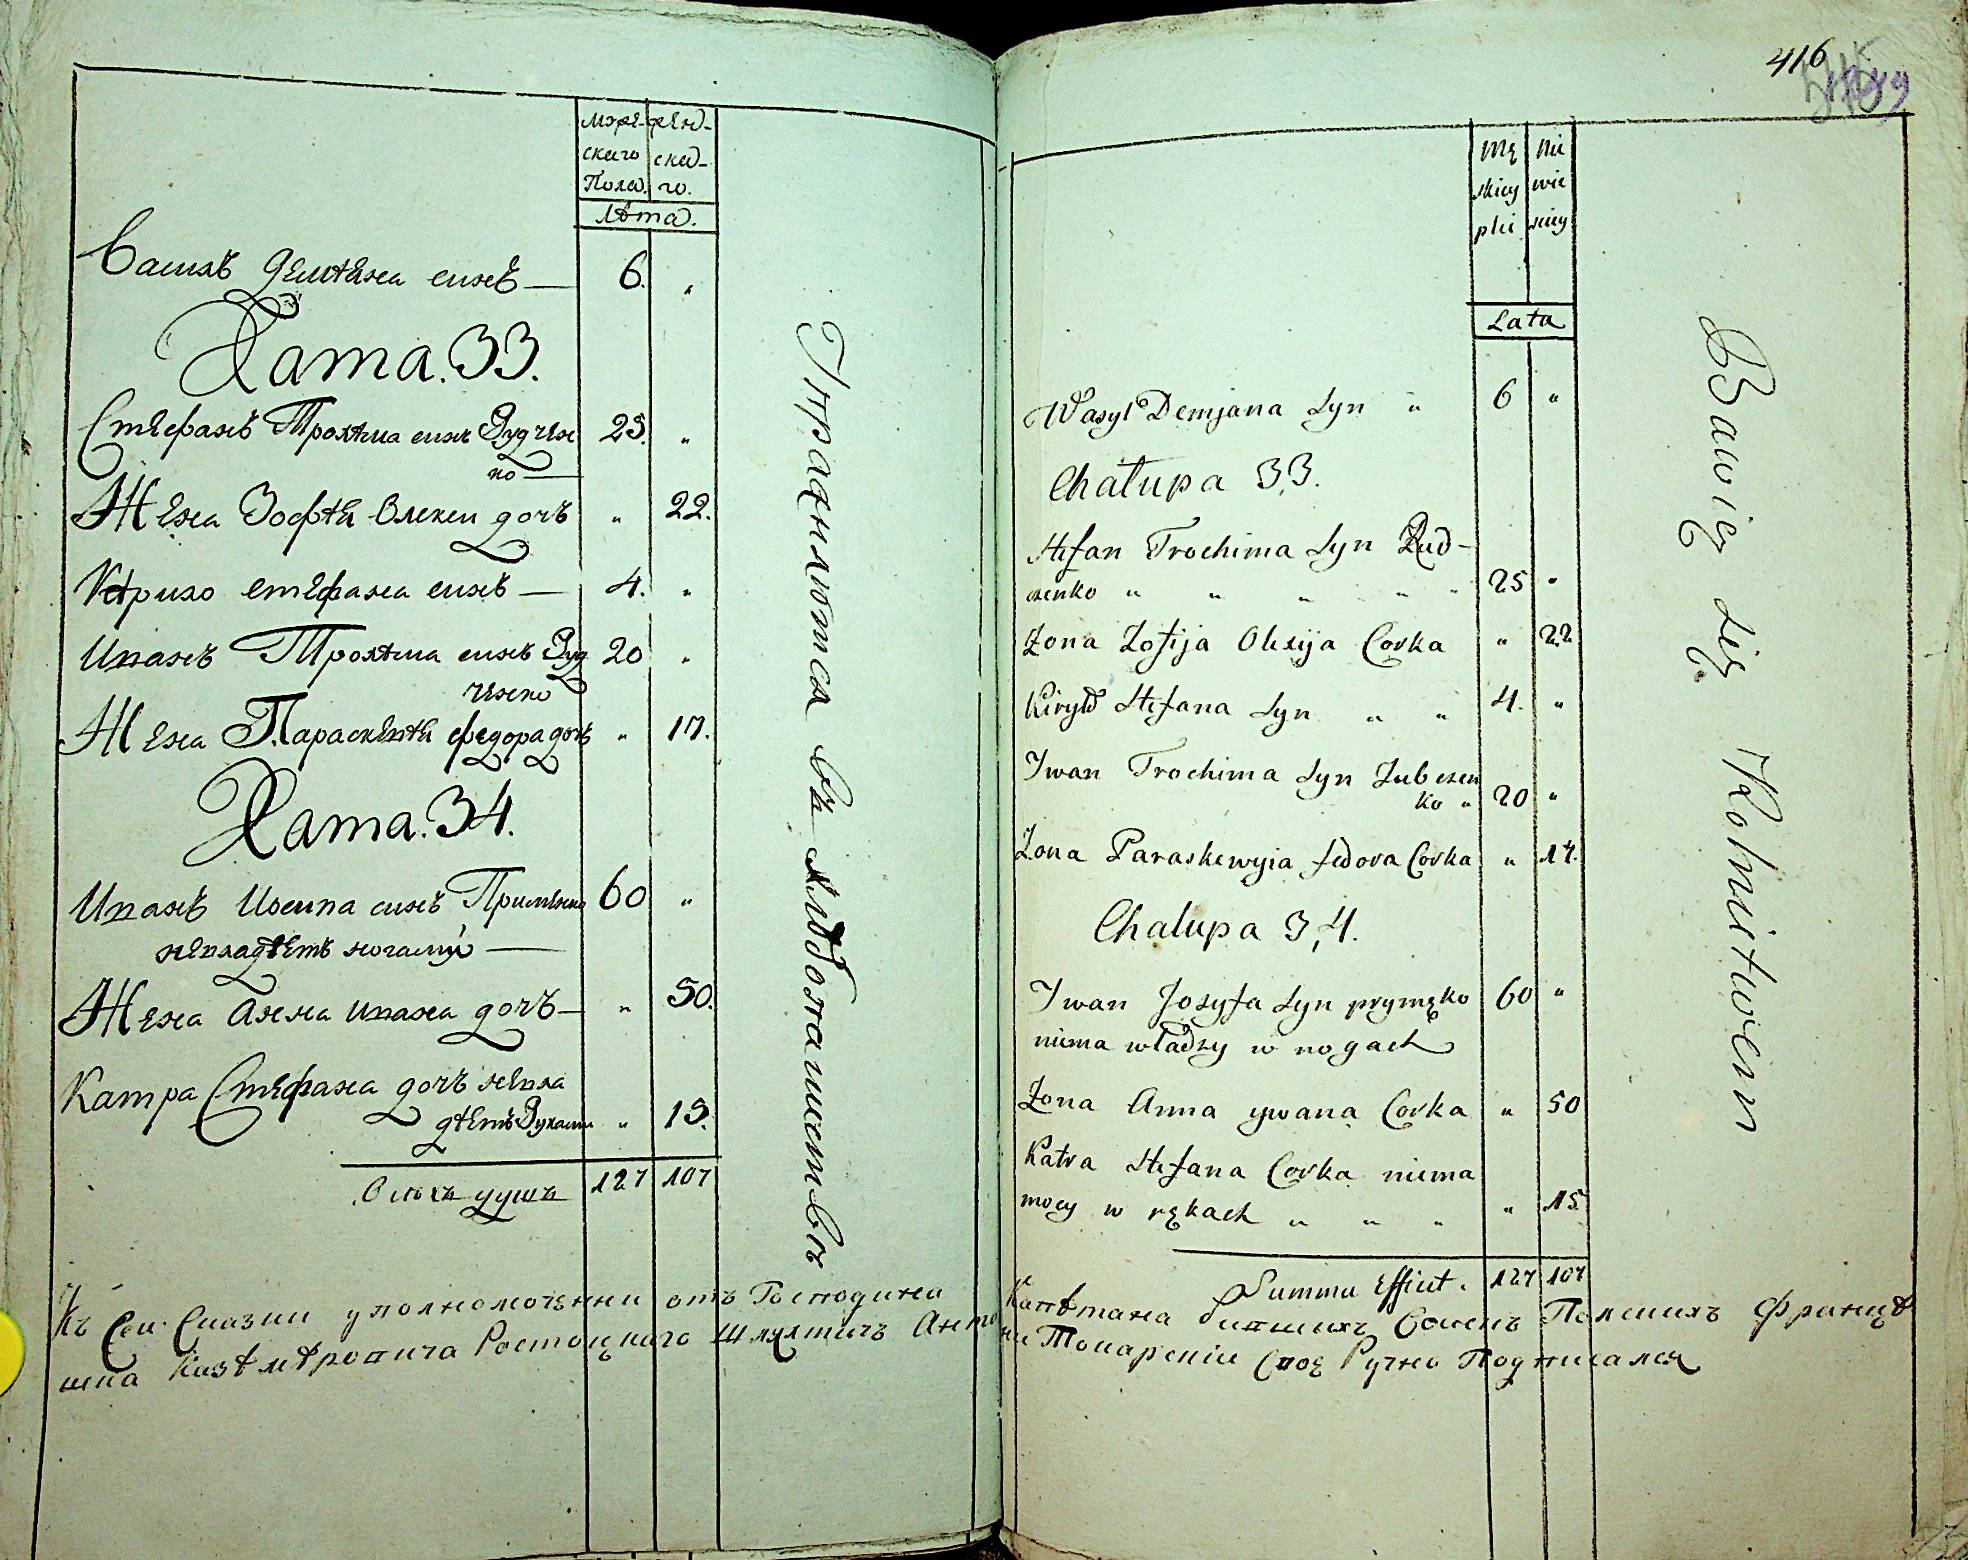 мужe- жен-
скаго ска-
Пола. го.
Лѣта.
Василь демѣяна синъ — 6. „
Хата. 33.
Стефанъ Трохима синъ Дудчен
ко — 25. „
Жена Зофѣя Олекси дочъ „ 22.
Кѣрило стефана синъ — 4. „
Иванъ Трохима синъ Дуд 20 „
ченко
Жена Параскевѣя федора дочъ „ 17.
Хата. 34.
Иванъ Иосипа синъ Примѣнко 60 „
невладѣетъ ногами —
Жена Анна ивана дочъ — „ 50.
Катра Стефана дочъ невла
дѣетъ Руками „ 15.
Всѣхъ душъ 127 107
Упражняются въ хлѣбопашествѣ
416
Mę Nie
skiey wie
płci sciey
Lata
Wasyl Demjana Syn „ 6 „
Chałupa 33.
Stefan Trochima Syn Dud-
czenko „ „ „ „ „ 25 „
Żona Zofija Olexija Corka „ 22
Kiryło Stefana Syn „ „ 4. „
Iwan Trochima Syn Dudczen
ko „ 20 „
Żona Paraskewyia fedora Corka „ 17.
Chałupa 34.
Iwan Jozyfa Syn prymęko 60 „
niema władzy w nogach
Żona Anna ywana Corka „ 50
Katra Stefana Corka niema
mocy w rękach „ „ „ „ 15
Summa Efficit. 127 107
Bawię się Rolnictwem
Къ Сей Сказки уполномоченни отъ Господина Капѣтана бившихъ Войскъ Полскихъ Францѣ
шка Казѣмѣровича Ростоцкого Шляхтичъ Антони Товарскіи Свое Ручно Подписался